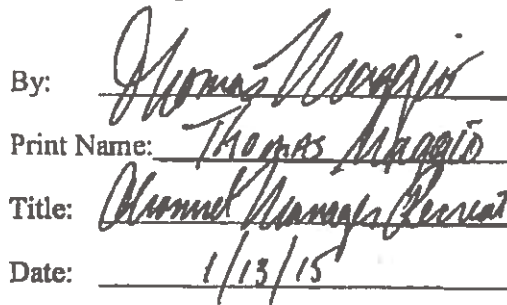 By: Thomas Maggio
Print Name: Thomas Maggio
Title: Channel Manager Recreat
Date: 1/13/15